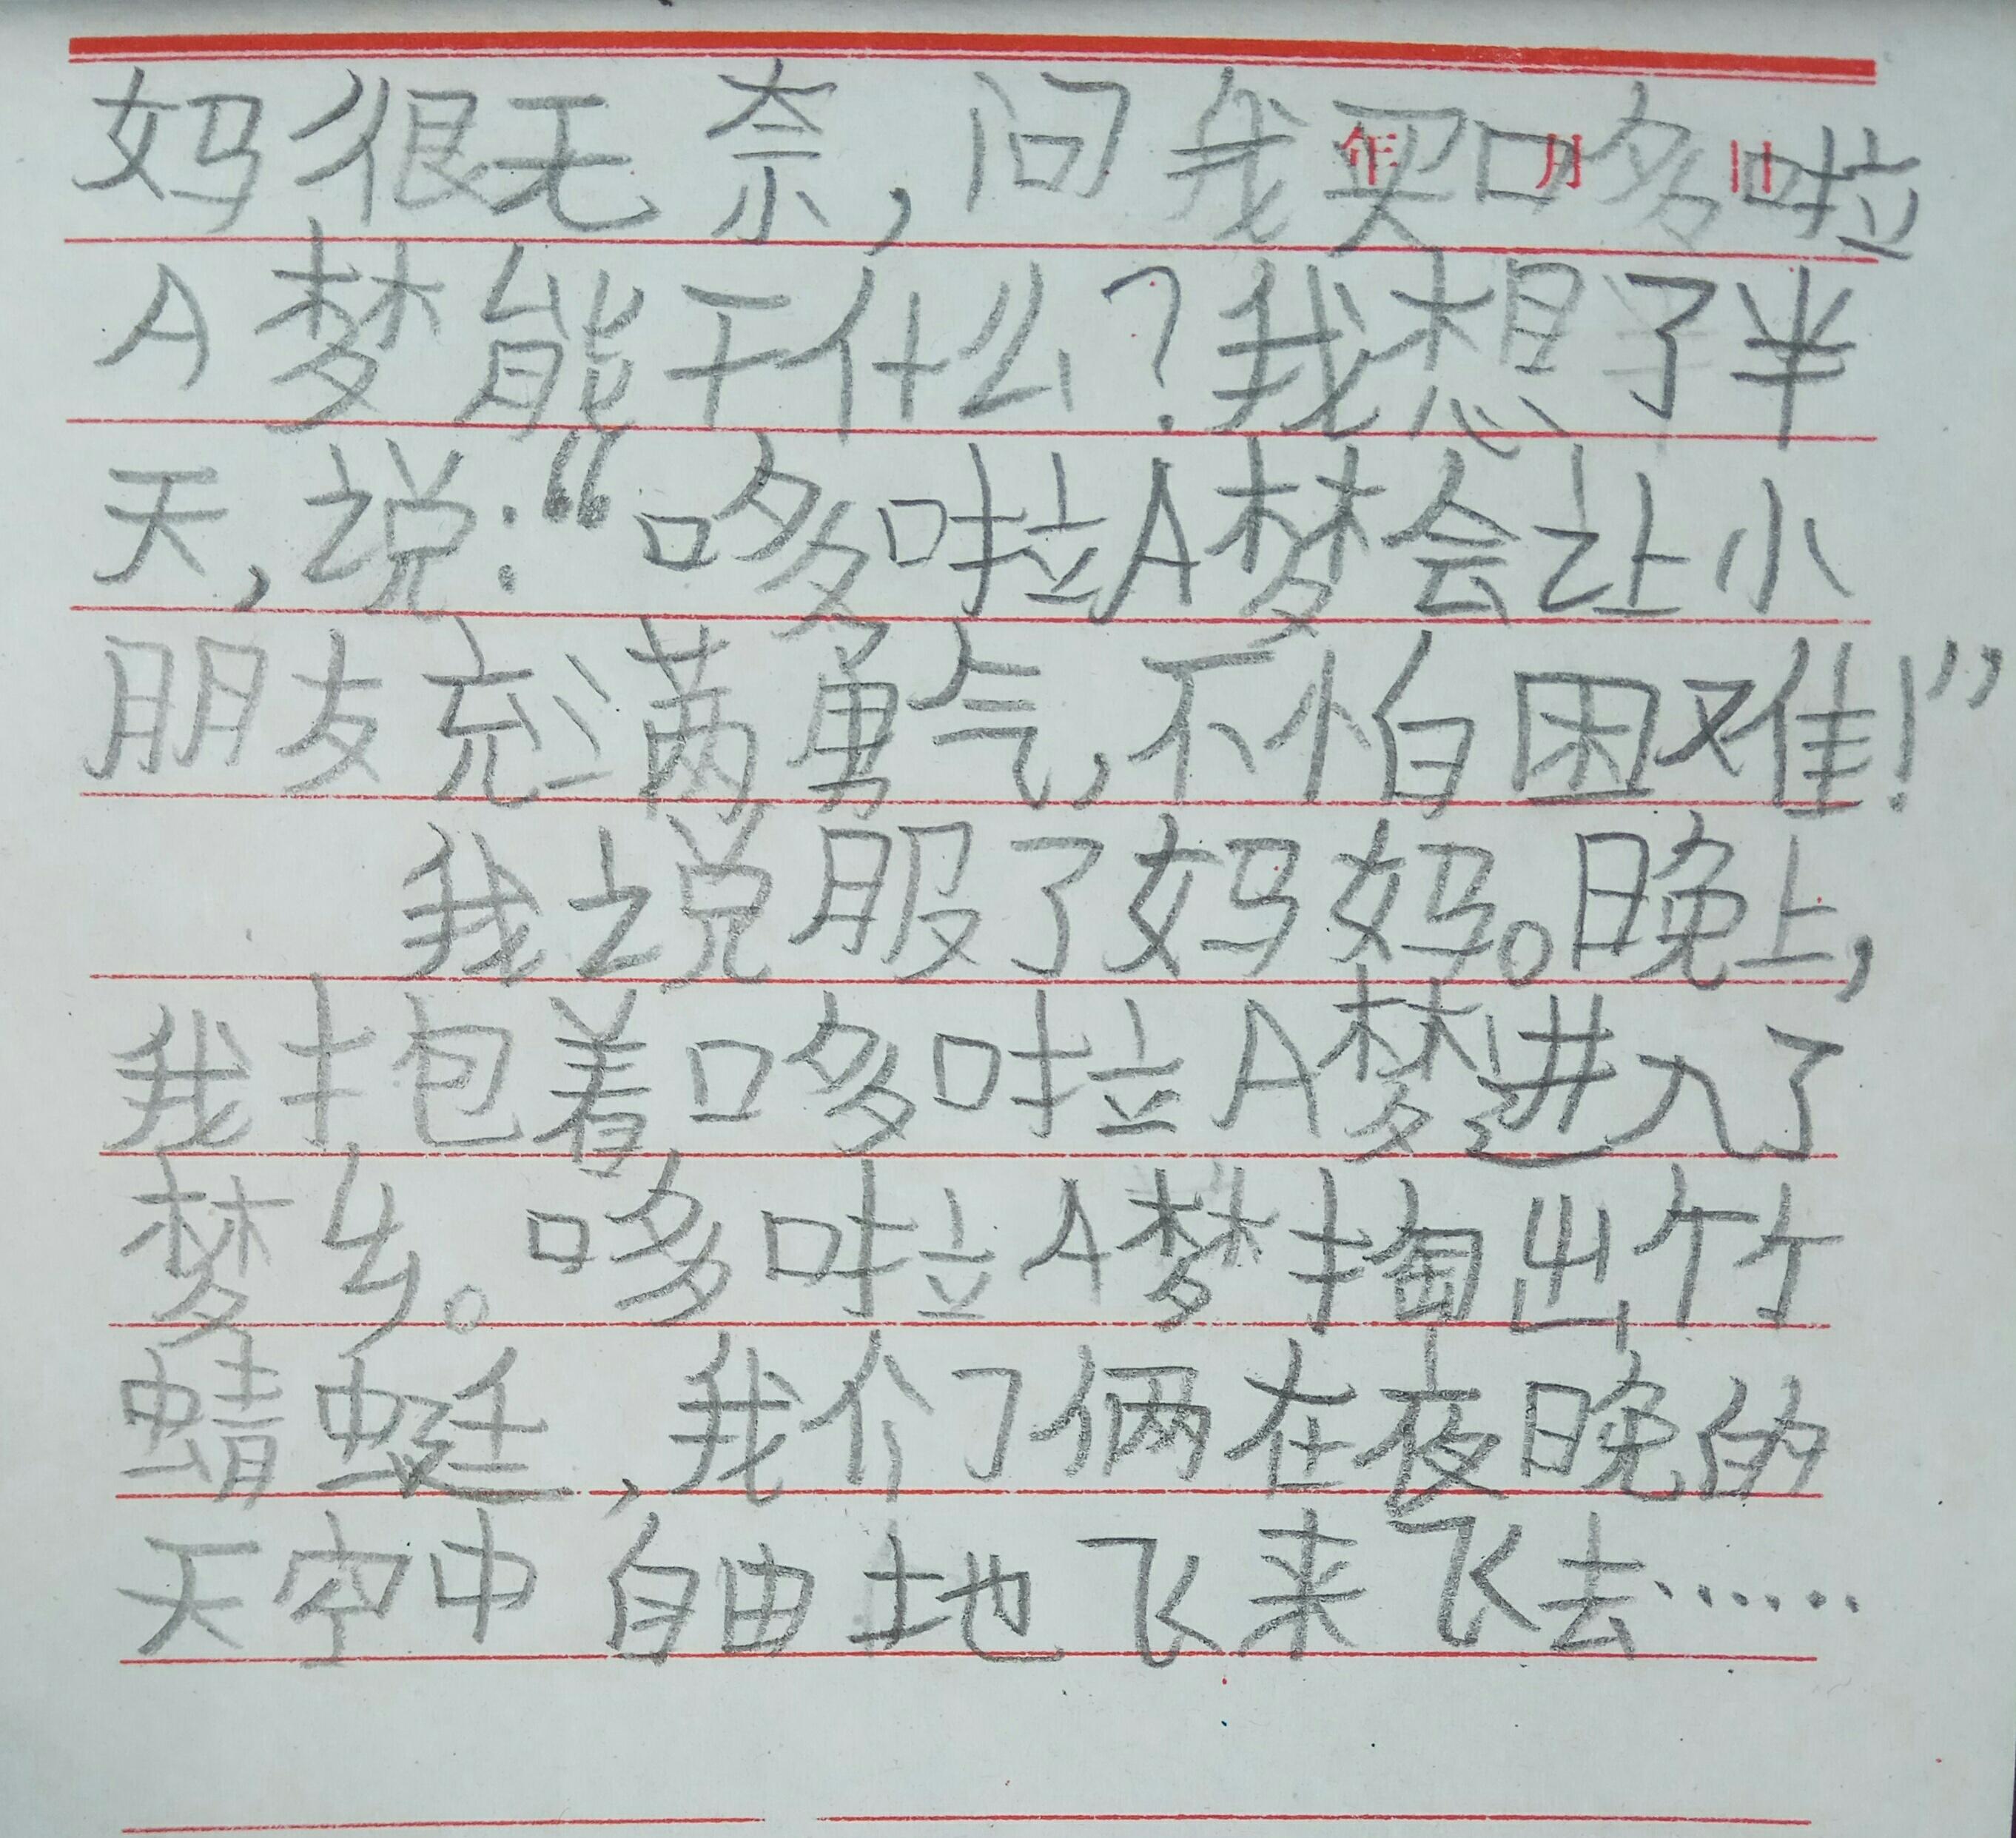 年 月 日
妈很无奈，问我买哆啦
A梦能干什么？我想了半
天，说：“哆啦A梦会让小
朋友充满勇气，不怕困难！”
我说服了妈妈。晚上，
我抱着哆啦A梦进入了
梦乡。哆啦A梦掏出竹
蜻蜓，我们俩在夜晚的
天空中自由地飞来飞去……